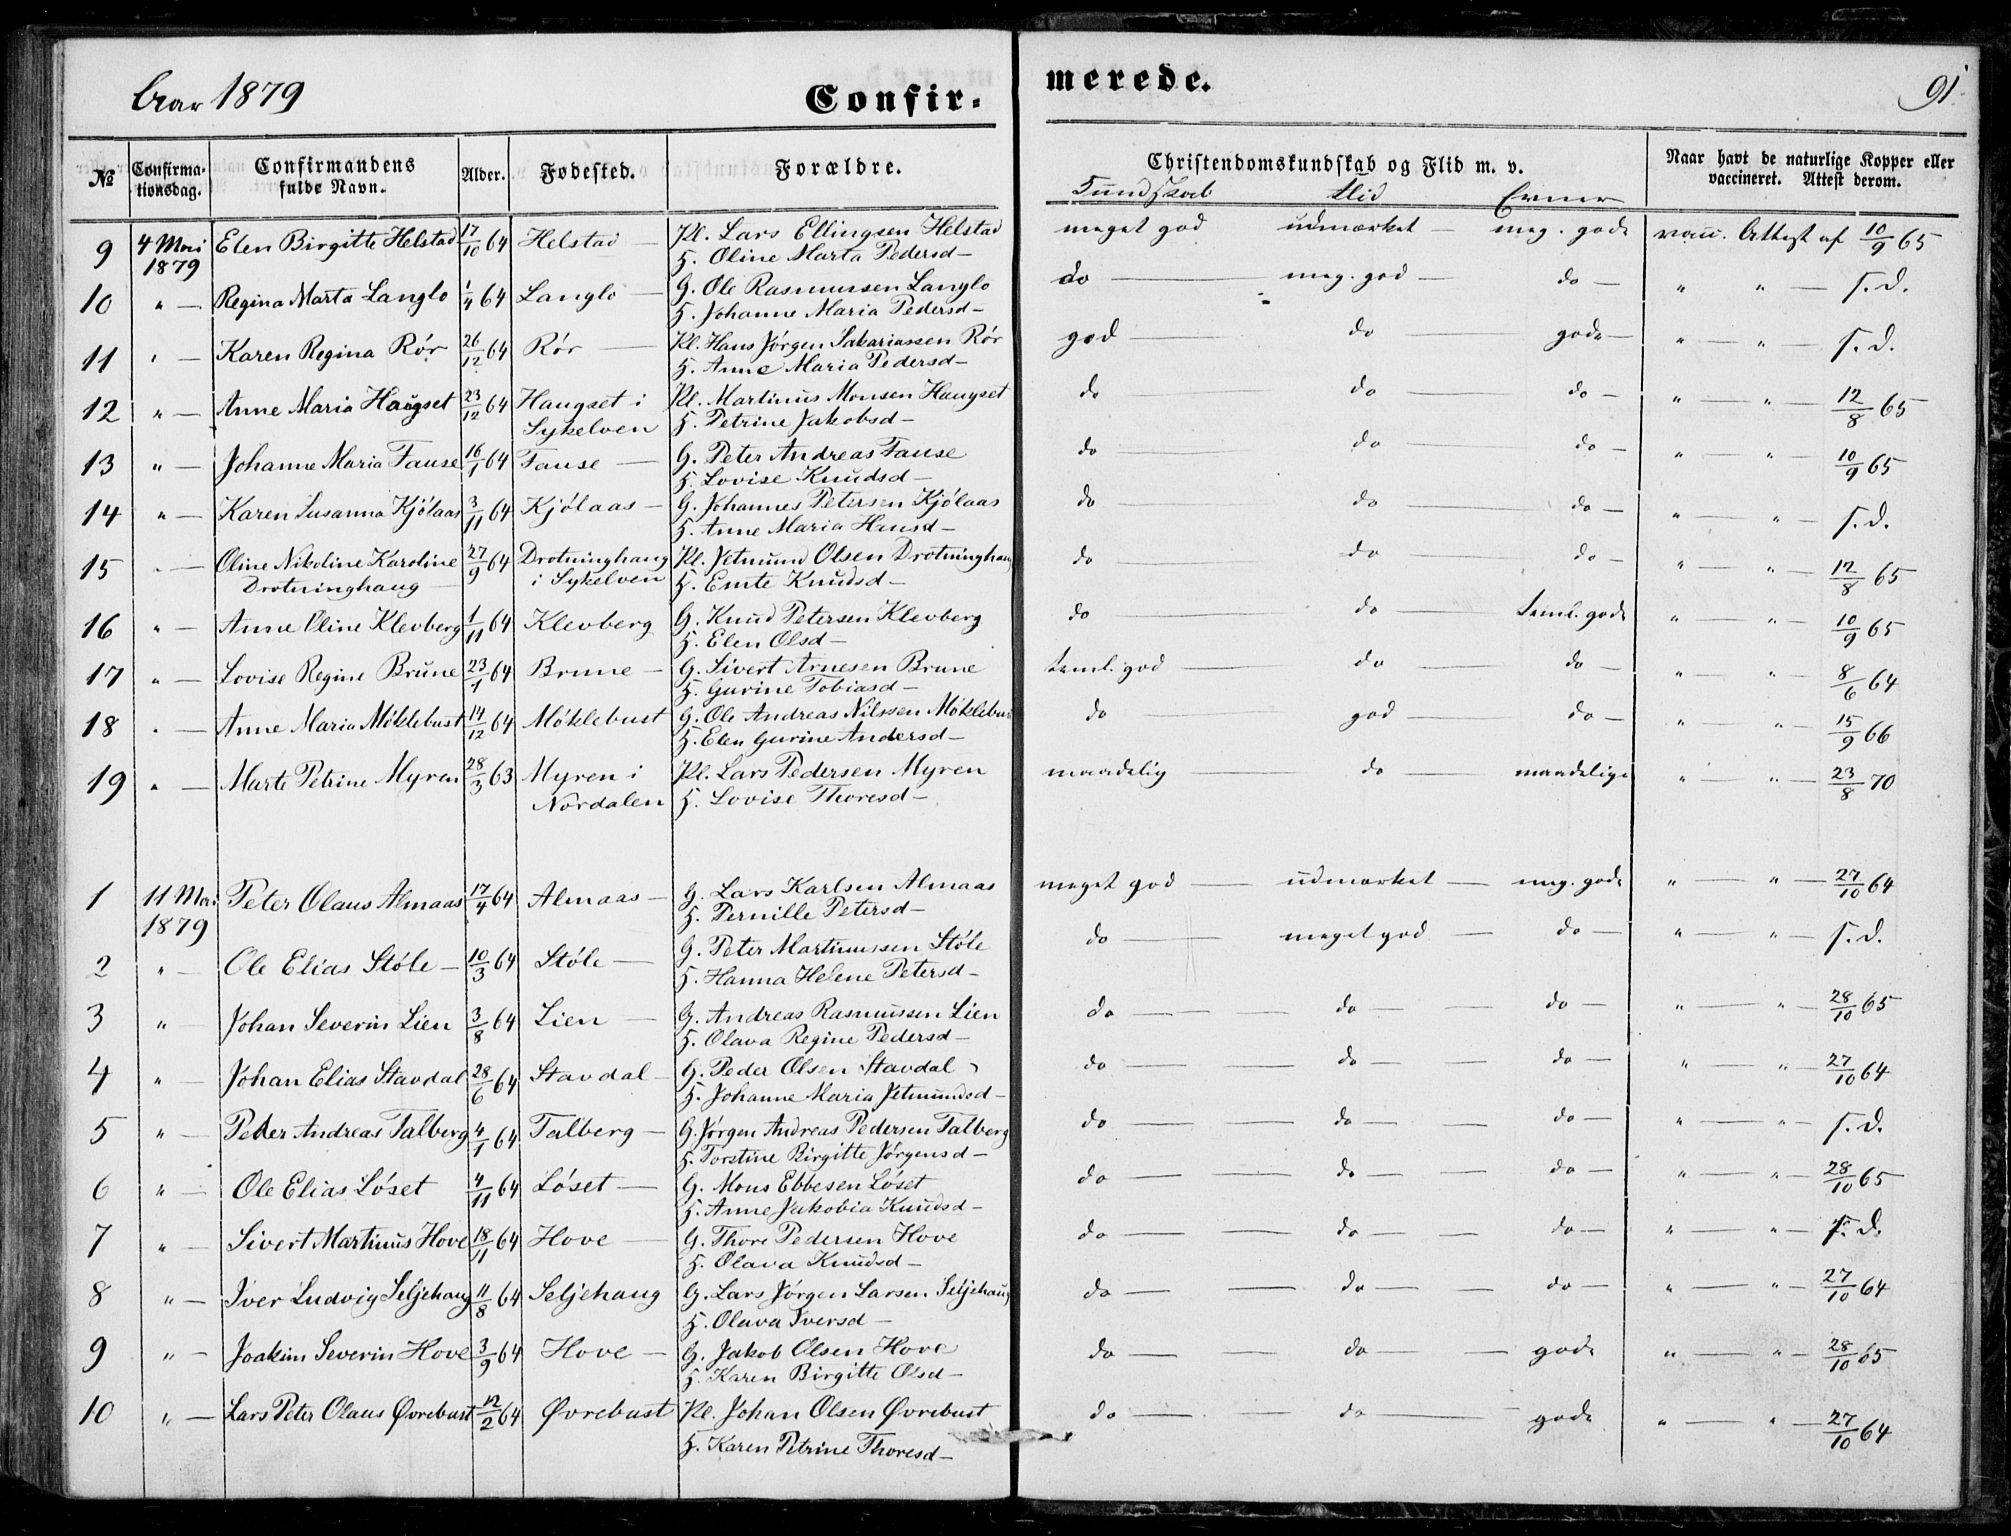 Aar 1879 Confir- merede. 91
№ Confirma-tionsdag. Confirmandens fulde Navn. Alder. Fødested. Forældre. Christendomskundskab og Flid m. v. Naar havt de naturlige Kopper eller vaccineret. Attest derom.
Kundskab Flid Evner
9 4 Mai 1879 Elen Birgitte Helstad 17/10 64 Helstad — Pl. Lars Ellingsen Helstad meget god udmærket — meg. gode vacc. Attest af 10/9 65
H. Oline Marta Pedersd —
10 " — Regina Marta Langlo 1/4 64 Langlo — G. Ole Rasmussen Langlo do — meg. god — do — " " — s. d.
H. Johanne Maria Pedersd —
11 " — Karen Regina Rór 26/12 64 Rór — Pl. Hans Jørgen Sakariassen Rór god — do — gode — " — " — s. d.
H. Anne Maria Pedersd —
12 " — Anne Maria Haugset 23/12 64 Haugset i Pl. Martinus Monsen Haugset do — do — do — " — " — 12/8 65
Sykelven H. Petrine Jakobsd —
13 " — Johanne Maria Fause 16/1 64 Fause — G. Peter Andreas Fause do — do — do — " — " — 10/9 65
H. Lovise Knudsd —
14 " — Karen Susanna Kjólaas 3/11 64 Kjólaas — G. Johannes Petersen Kjólaas do — do — do — " — " — s. d.
H. Anne Maria Hansd —
15 " — Oline Nikoline Karoline 27/9 64 Drotninghaug Pl. Jetmund Olsen Drotninghaug do — do — do — " — " — 12/8 65
Drotninghaug i Sykelven H. Emte Knudsd —
16 " — Anne Oline Klevberg 1/11 64 Klevberg G. Knud Petersen Klevberg do — do — teml. gode " — " — 10/9 65
H. Elen Olsd —
17 " — Lovise Regine Brune 23/1 64 Brune — G. Sivert Arnesen Brune teml. god — do — do — " — " — 8/6 64
H. Gurine Tobiasd —
18 " — Anne Maria Móklebust 14/12 64 Móklebust G. Ole Andreas Nilssen Móklebust do — god — do — " — " — 15/9 66
H. Elen Gurine Andersd —
19 " — Marte Petrine Myren 28/3 63 Myren i Pl. Lars Pedersen Myren maadelig — do — maadelige " — " — 23/8 70
Nordalen H. Lovise Thoresd —
1 11 Mai 1879 Peter Olaus Almaas 17/4 64 Almaas — G. Lars Karlsen Almaas meget god — udmærket — meg. gode " — " — 27/10 64
H. Pernille Petersd —
2 " — Ole Elias Stóle — 10/3 64 Stóle — G. Peter Martinussen Stóle do — meget god — do — " — " — s. d.
H. Hanna Helene Petersd —
3 " — Johan Severin Lien 3/8 64 Lien — G. Andreas Rasmussen Lien do — do — do — " — " — 28/10 65
H. Olava Regine Pedersd —
4 " — Johan Elias Stavdal 28/6 64 Stavdal — G. Peder Olsen Stavdal do — do — do — " — " — 27/10 64
H. Johanne Maria Jetmundsd —
5 " — Peder Andreas Talberg 4/1 64 Talberg — G. Jørgen Andreas Pedersen Talberg do — do — do — " — " — s. d.
H. Torstine Birgitte Jørgensd —
6 " — Ole Elias Lóset 4/11 64 Lóset — G. Mons Ebbesen Lóset do — do — do — " — " — 28/10 65
H. Anne Jakobia Knudsd —
7 " — Sivert Martinus Hove 18/11 64 Hove — G. Thore Pedersen Hove do — do — do — " — " — s. d.
H. Olava Knudsd —
8 " — Iver Ludvig Seljehaug 11/8 64 Seljehaug G. Lars Jørgen Larsen Seljehaug do — do — do — " — " — 27/10 64
H. Olava Iversd —
9 " — Joakim Severin Hove 3/9 64 Hove — G. Jakob Olsen Hove do — do — gode " — " — 28/10 65
H. Karen Birgitte Olsd —
10 " — Lars Peter Olaus Øvrebust 12/2 64 Øvrebust Pl. Johan Olsen Øvrebust do — do — gode " — " — 27/10 64
H. Karen Petrine Thoresd —